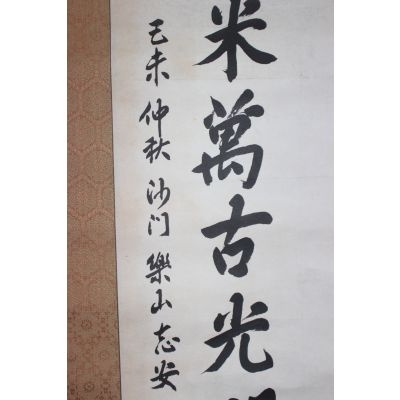 米萬古光
己未仲秋沙门樂山志安